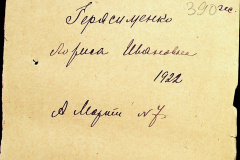 390 гис.
Герасименко
Лориса Ивановн
1922
А Марті N 7